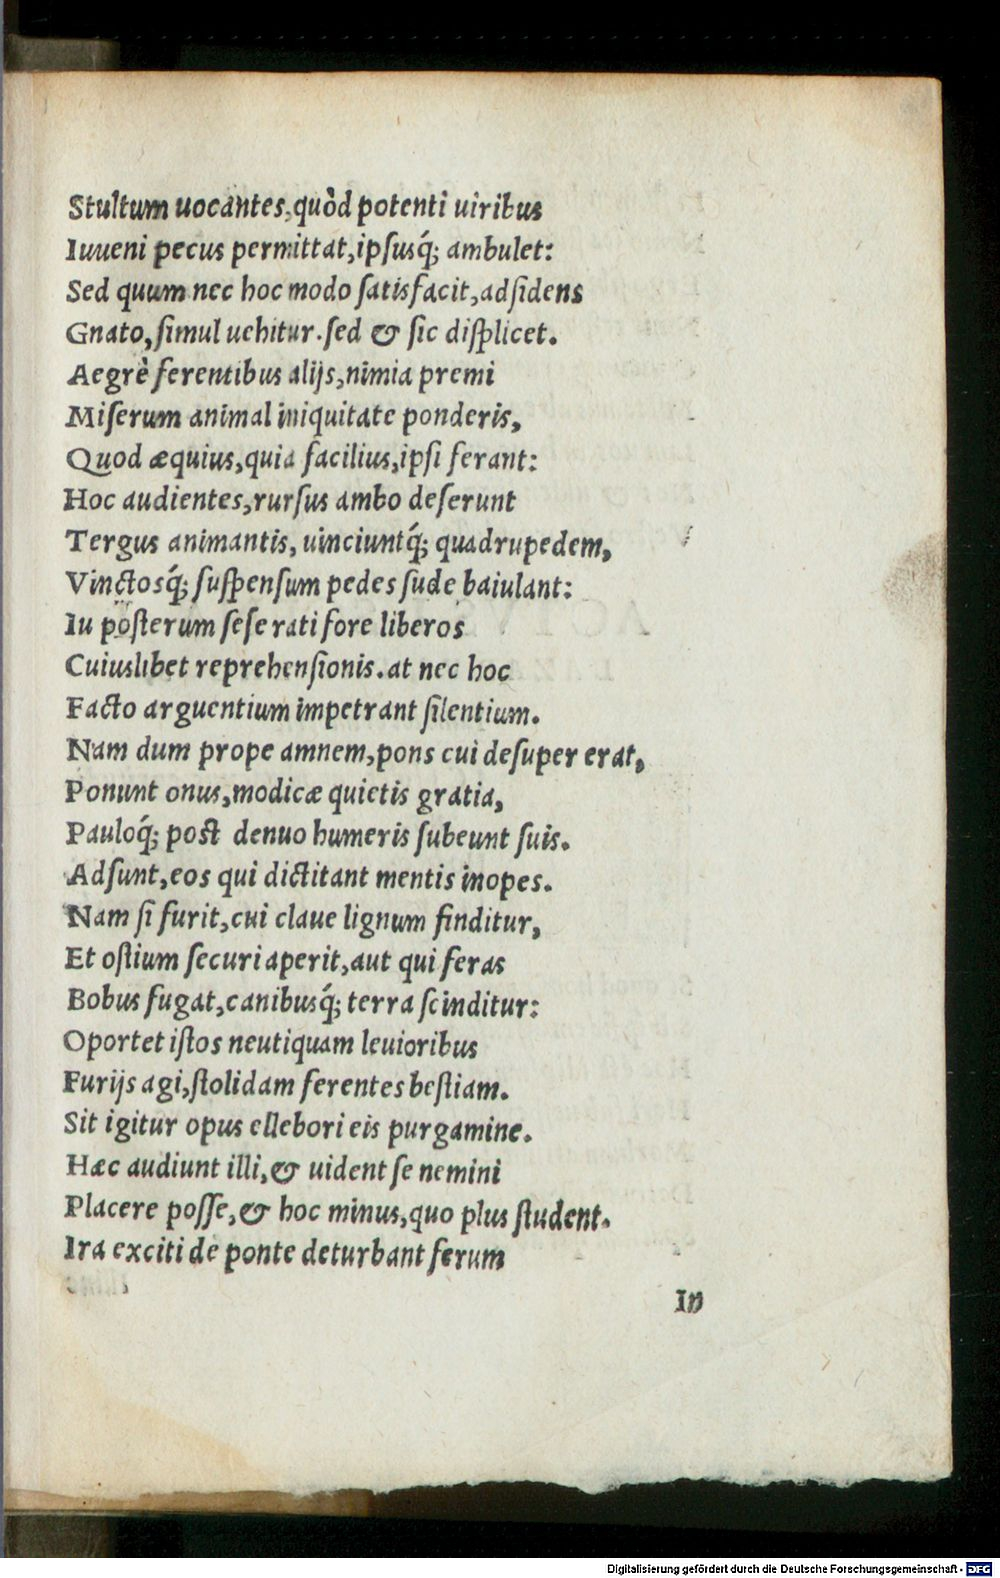 Stultum uocantes,quòd potenti uiribus
Iuueni pecus permittat,ipſusq́; ambulet:
Sed quum nec hoc modo ſatisfacit,adſidens
Gnato,ſimul uehitur.ſed & ſic diſplicet.
Aegrè ferentibus alijs,nimia premi
Miſerum animal iniquitate ponderis,
Quod æquius,quia facilius,ipſi ferant:
Hoc audientes,rurſus ambo deſerunt
Tergus animantis, uinciuntq́; quadrupedem,
Vinctosq́; ſuſpenſum pedes ſude baiulant:
Iu poſterum ſeſe rati fore liberos
Cuiuslibet reprehenſionis.at nec hoc
Facto arguentium impetrant ſilentium.
Nam dum prope amnem,pons cui deſuper erat,
Ponunt onus,modicæ quietis gratia,
Pauloq́; poſt denuo humeris ſubeunt ſuis.
Adſunt,eos qui dictitant mentis inopes.
Nam ſi furit,cui claue lignum finditur,
Et oſtium ſecuri aperit,aut qui feras
Bobus fugat,canibusq́; terra ſcinditur:
Oportet iſtos neutiquam leuioribus
Furijs agi,ſtolidam ferentes beſtiam.
Sit igitur opus ellebori eis purgamine.
Hæc audiunt illi,& uident ſe nemini
Placere poſſe,& hoc minus,quo plus ſtudent.
Ira exciti de ponte deturbant ferum
In
Digitalisierung gefördert durch die Deutsche Forschungsgemeinschaft - DFG